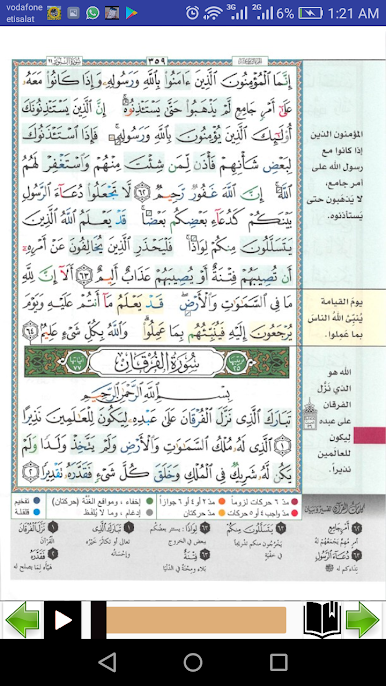 vodafone
etisalat
3G
2G
6%
1:21 AM
٣٥٩
إِنَّمَا الْمُؤْمِنُونَ الَّذِينَ ءَامَنُوا بِاللَّهِ وَرَسُولِهِ وَإِذَا كَانُوا مَعَهُ
عَلَىٰ أَمْرٍ جَامِعٍ لَمْ يَذْهَبُوا حَتَّىٰ يَسْتَأْذِنُوهُ إِنَّ الَّذِينَ يَسْتَأْذِنُونَكَ
أُولَٰئِكَ الَّذِينَ يُؤْمِنُونَ بِاللَّهِ وَرَسُولِهِ فَإِذَا اسْتَأْذَنُوكَ
لِبَعْضِ شَأْنِهِمْ فَأْذَنْ لِمَنْ شِئْتَ مِنْهُمْ وَاسْتَغْفِرْ لَهُمُ
اللَّهَ إِنَّ اللَّهَ غَفُورٌ رَحِيمٌ ٦٢ لَا تَجْعَلُوا دُعَاءَ الرَّسُولِ
بَيْنَكُمْ كَدُعَاءِ بَعْضِكُمْ بَعْضًا قَدْ يَعْلَمُ اللَّهُ الَّذِينَ
يَتَسَلَّلُونَ مِنْكُمْ لِوَاذًا فَلْيَحْذَرِ الَّذِينَ يُخَالِفُونَ عَنْ أَمْرِهِ
أَنْ تُصِيبَهُمْ فِتْنَةٌ أَوْ يُصِيبَهُمْ عَذَابٌ أَلِيمٌ ٦٣ أَلَا إِنَّ لِلَّهِ
مَا فِي السَّمَٰوَٰتِ وَالْأَرْضِ قَدْ يَعْلَمُ مَا أَنْتُمْ عَلَيْهِ وَيَوْمَ
يُرْجَعُونَ إِلَيْهِ فَيُنَبِّئُهُمْ بِمَا عَمِلُوا وَاللَّهُ بِكُلِّ شَيْءٍ عَلِيمٌ ٦٤
سُورَةُ الْفُرْقَانِ
بِسْمِ اللَّهِ الرَّحْمَٰنِ الرَّحِيمِ
تَبَارَكَ الَّذِي نَزَّلَ الْفُرْقَانَ عَلَىٰ عَبْدِهِ لِيَكُونَ لِلْعَالَمِينَ نَذِيرًا
١ الَّذِي لَهُ مُلْكُ السَّمَٰوَٰتِ وَالْأَرْضِ وَلَمْ يَتَّخِذْ وَلَدًا وَلَمْ
يَكُنْ لَهُ شَرِيكٌ فِي الْمُلْكِ وَخَلَقَ كُلَّ شَيْءٍ فَقَدَّرَهُ تَقْدِيرًا ٢
المؤمنون الذين
إذا كانوا مع
رسول الله على
أمر جامع،
لا يَذهبون حتى
يستأذنوه.
يومَ القيامة
يُنبّئ اللهُ الناسَ
بما عَمِلوا.
الله هو
الذي نَزَّل
الفرقان
على عبده
ليكون
للعالمين
نذيراً.
مدّ ٦ حركات لزوماً
مدّ ٢ أو ٤ أو ٦ جوازاً
إخفاء، ومواقع الغُنَّة (حركتان)
تفخيم
مدّ واجب ٤ أو ٥ حركات
مدّ حركتان
إدغام، وما لا يُلفَظ
قلقلة
أَمْرٍ جَامِعٍ
دُعَاءَ الرَّسُولِ
نداءكم له
يَتَسَلَّلُونَ مِنْكُمْ
لِوَاذًا
فِتْنَةٌ
تَبَارَكَ الَّذِي
نَزَّلَ الْفُرْقَانَ
القرآن
فَقَدَّرَهُ